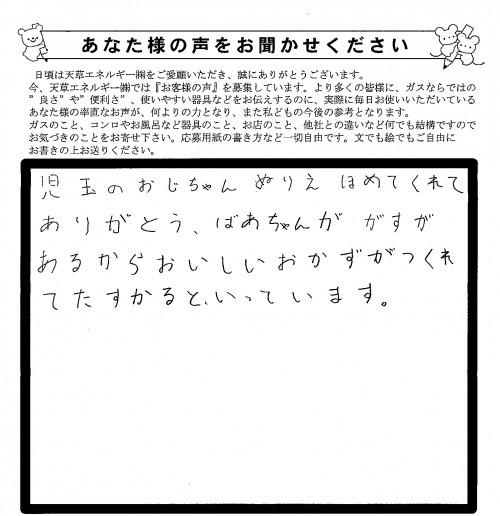 あなた様の声をお聞かせください
日頃は天草エネルギー㈱をご愛顧いただき、誠にありがとうございます。
今、天草エネルギー㈱では『お客様の声』を募集しています。より多くの皆様に、ガスならではの
”良さ”や”便利さ”、使いやすい器具などをお伝えするのに、実際に毎日お使いいただいている
あなた様の率直なお声が、何よりの力となり、また私どもの今後の参考となります。
ガスのこと、コンロやお風呂など器具のこと、お店のこと、他社との違いなど何でも結構ですので
お気づきのことをお寄せ下さい。応募用紙の書き方など一切自由です。文でも絵でもご自由に
お書きの上お送りください。
児玉のおじちゃん ぬりえ ほめてくれて
ありがとう、ばあちゃんが がすが
あるからおいしいおかずがつくれ
てたすかると、いっています。